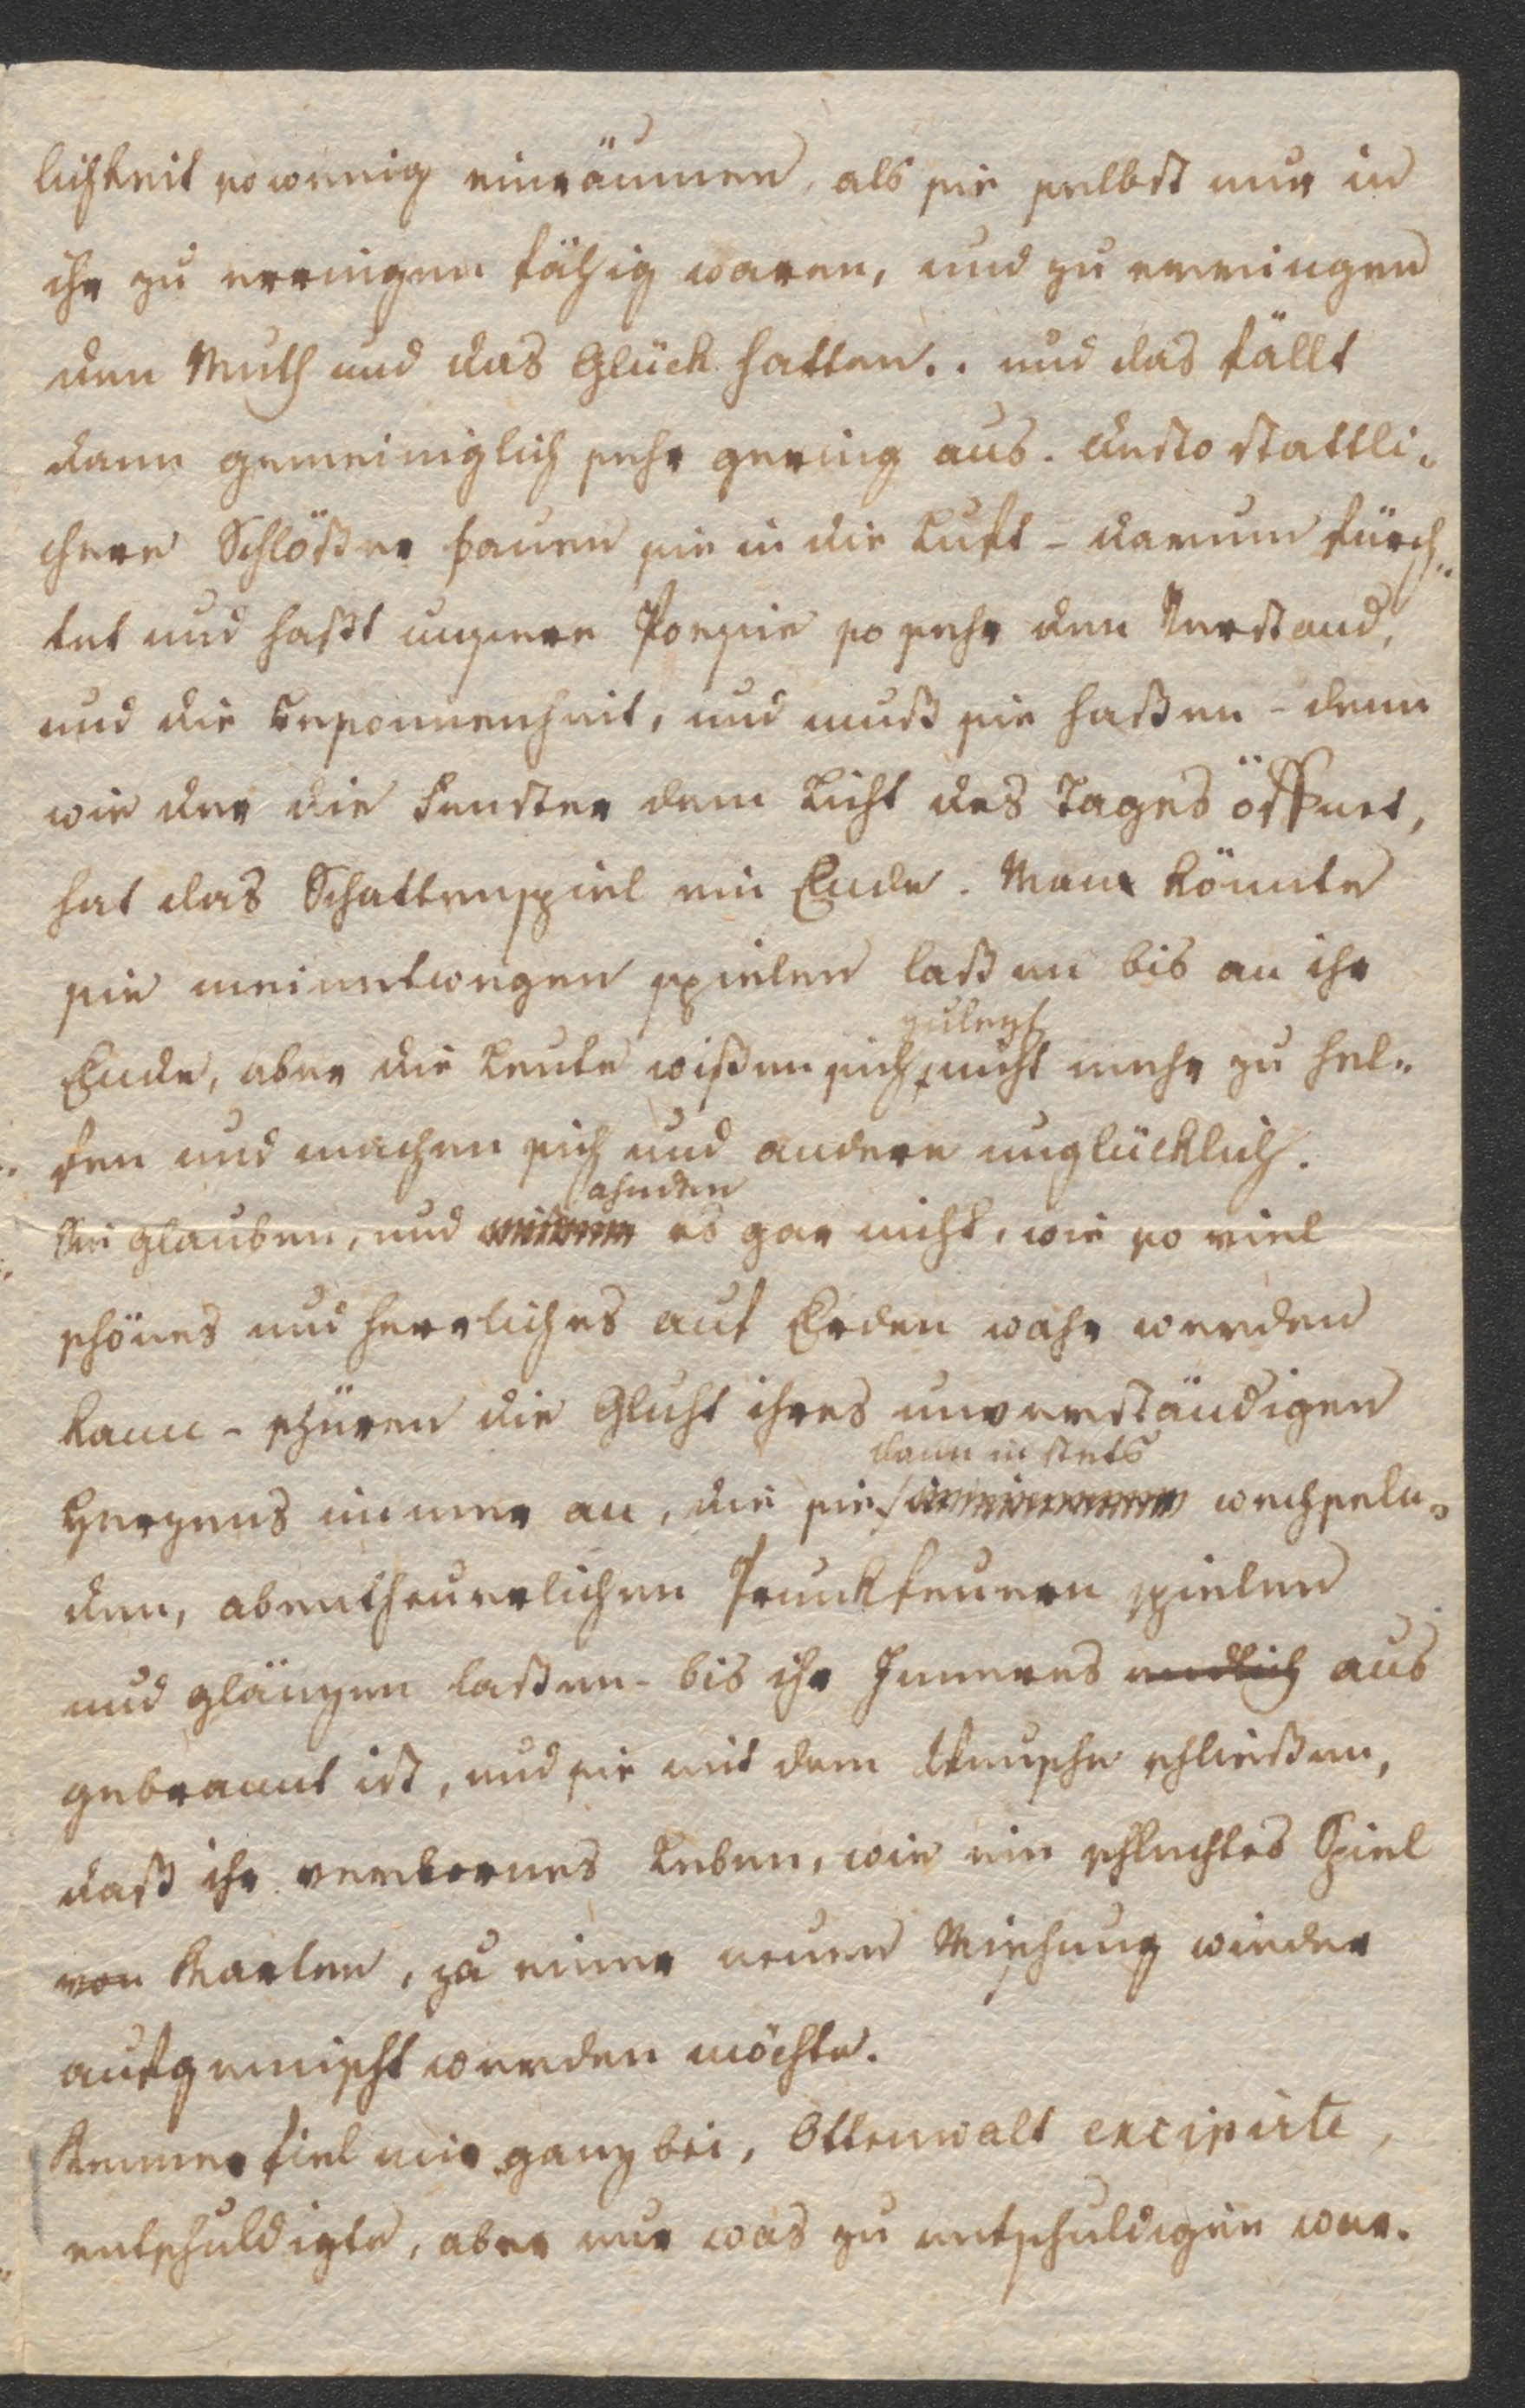 lichkeit so wenig einräumen, als sie selbst nur in
ihr zu erringen fähig waren, und zu erringen
den Muth und das Glück hatten.. und das fällt
dann gemeiniglich sehr gering aus. desto stattli-
chere Schlößer bauen sie in die Luft - darum fürch-
tet und haßt unsere Poesie so sehr den Verstand,
und die Besonnenheit, und muß sie haßen - denn
wie der die Fenster dem Licht des Tages öffnet,
hat das Schattenspiel ein Ende. Man könnte
sie meinetwegen spielen laßen bis an ihr
zulezt
Ende, aber die Leute wißen sich nicht mehr zu hel-
fen und machen sich und andere unglücklich.
ahnden
Sie glauben, und wißen es gar nicht, wie so viel
schönes und herrliches auf Erden wahr werden
kann - schüren die Gluht ihres unverständigen
dann in stets
Herzens immer an, die sie wechseln-
den, abentheuerlichen Prunkfeuern spielen
und glänzen laßen - bis ihr Inneres endlich aus
gebrannt ist, und sie mit dem Wunsche schließen,
daß ihr verlornes Leben, wie ein schlechtes Spiel
von Karten, zu einer neuen Mischung wieder
aufgemischt werden möchte.
Kenner fiel mir ganz bei, Ottenwalt excipirte,
entschuldigte, aber nur was zu entschuldigen war.